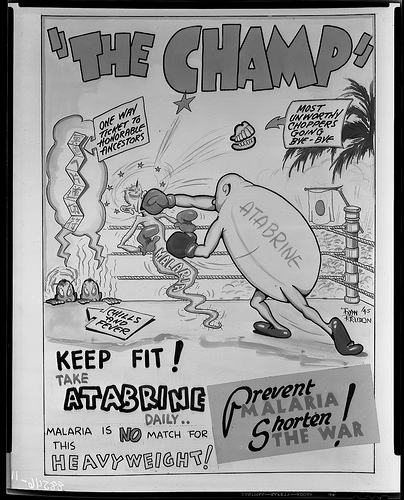 "THE CHAMP"
ONE WAY
TICKET TO
HONORABLE
ANCESTORS
MOST
UNWORTHY
CHOPPERS
GOING
BYE-BYE
ATABRINE
MALARIA
CHILLS
AND
FEVER
KEEP FIT!
TAKE
ATABRINE
DAILY..
MALARIA IS NO MATCH FOR
THIS
HEAVYWEIGHT!
Prevent
MALARIA
Shorten
THE WAR!